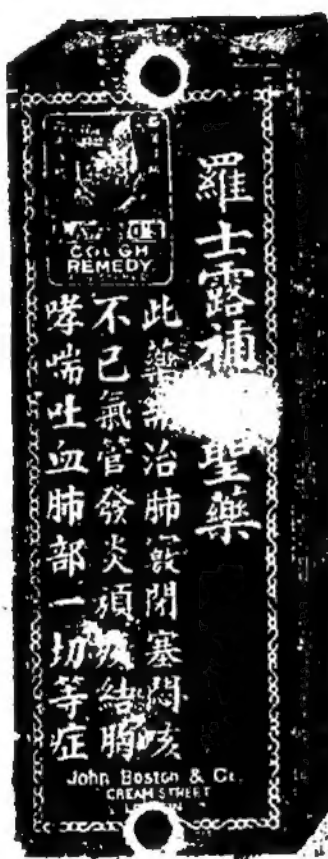 羅士露補聖藥
COUGH
REMEDY
此藥治肺閉塞悶咳
不已氣管發炎頑結胸
哮喘吐血肺部一切等症
John Boston & Co.
CREAM STREET
LONDON